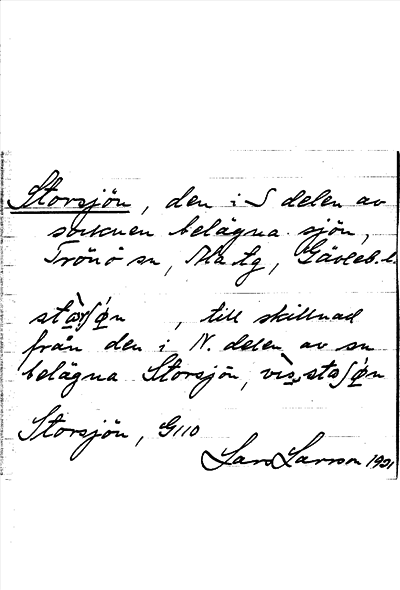 Storsjön, den i S delen av
socknen belägna sjön,
Trönö sn, Ala tg, Gävleb. l.
till skillnad
från den i N. delen av sn
belägna Storsjön,
Storsjön, G110
Lars Larson 1921